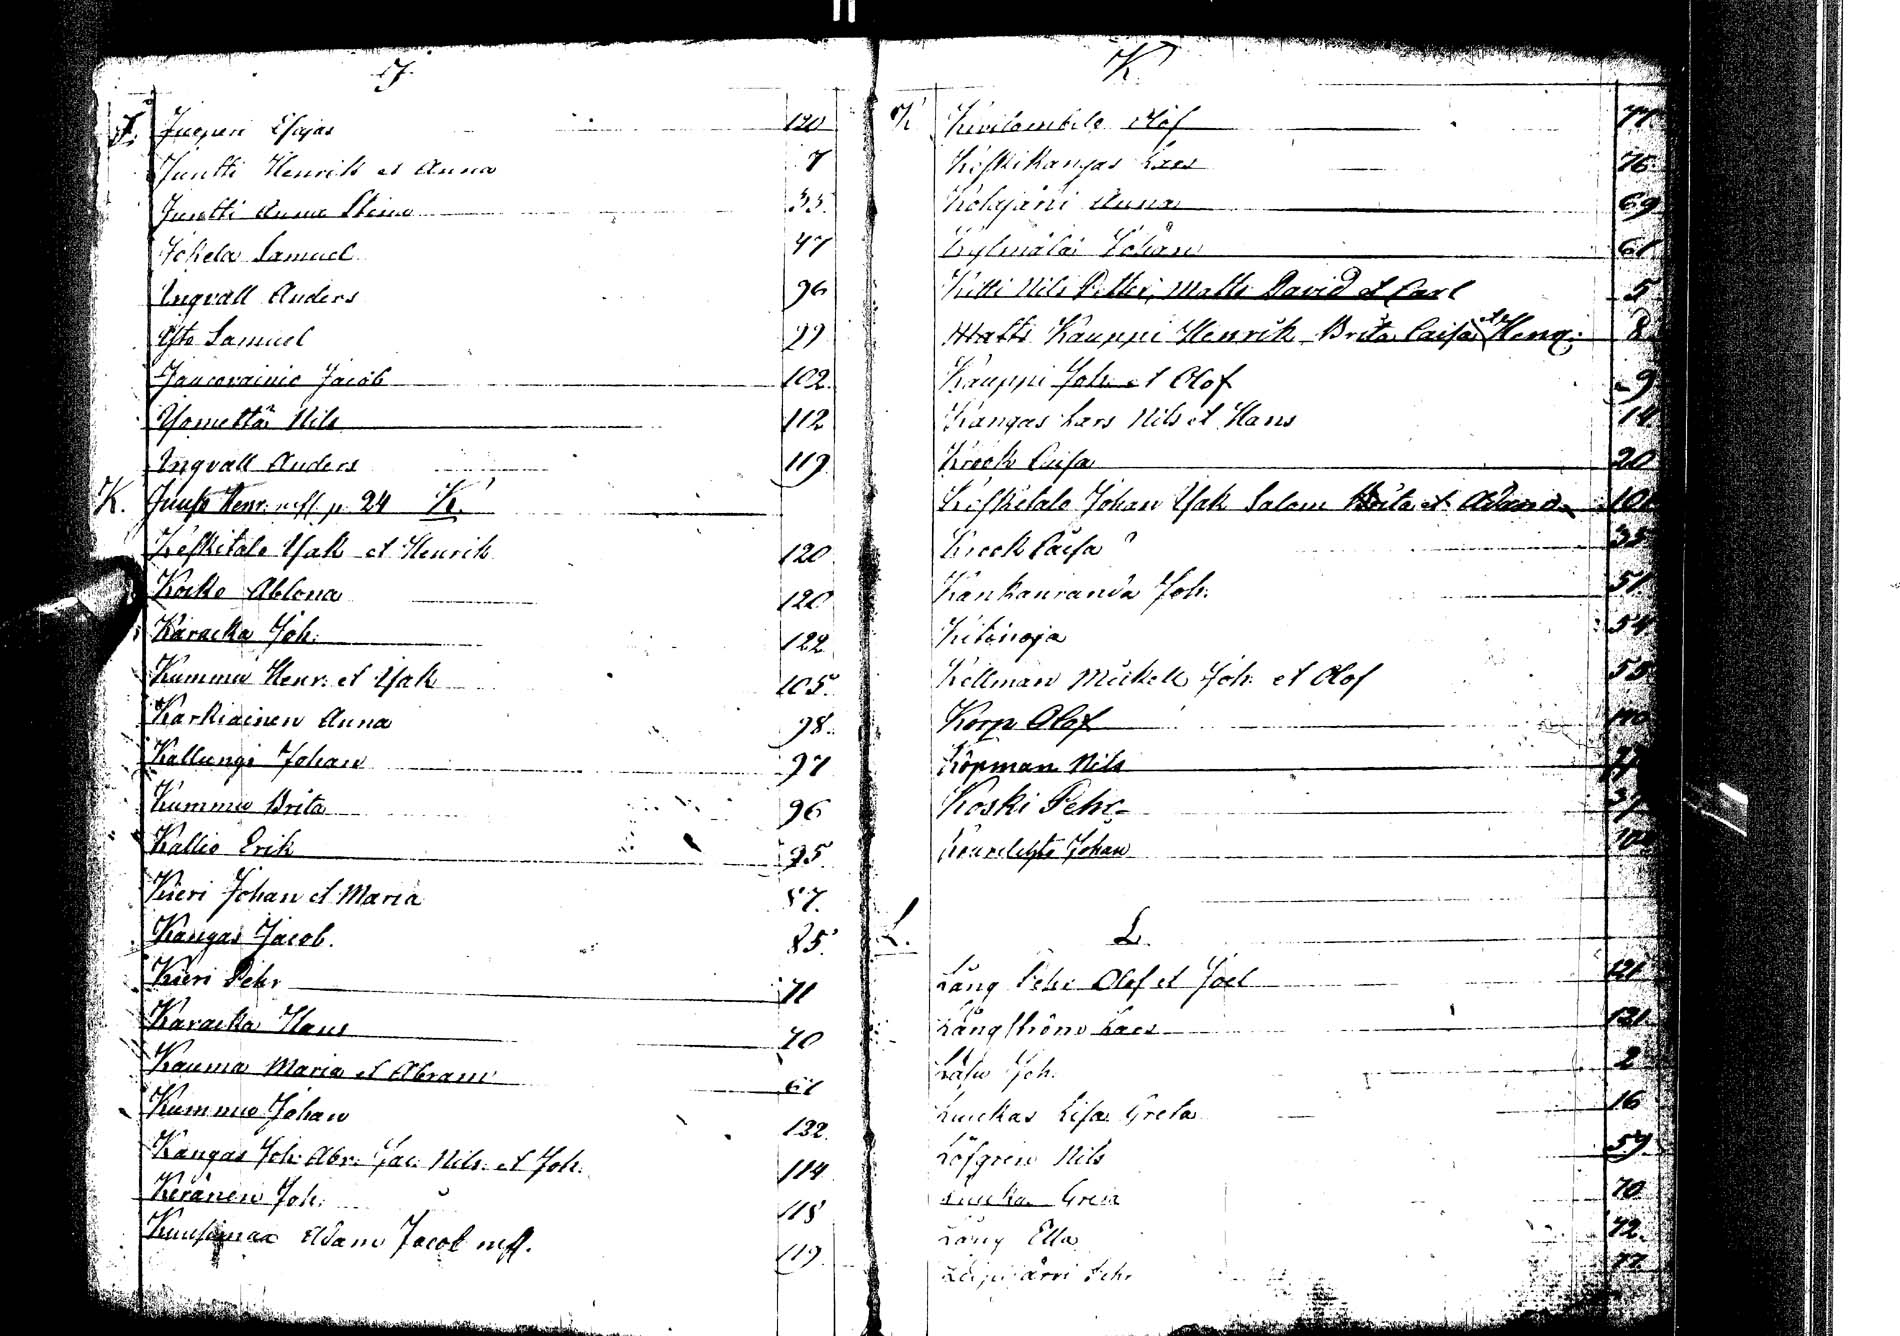 J.
J. Juopperi Esajas 120
Juntti Henrik et Anna 7
Juntti Anna Stina 35.
Johela Samuel 47
Ingvall Anders 96
Samuel 99
Jacob 102.
Nils 112
Ingvall Anders 119
K. Henr. p. 24 K.
Keskitalo Isak et Henrik 120
Koiko Ablona 120
Karacka Joh. 122
Kummu Henr. et Isak 105.
Karkiainen Anna 98.
Kallungi Johan 97
Kummu Brita 96
Kallio Erik 95.
Kieri Johan et Maria 87.
Kangas Jacob. 85.
Kieri Pehr 71
Karacka Hans 70
Kauma Maria et Abram 61
Kummu Johan 132.
Kangas Joh. Abr. Jac. Nils. et Joh. 114
Keränen Joh. 118
Adam Jacob 119
K
K Kivilombolo Olof 77
Koskikangas Lars 76.
Kohajärvi Anna 69
Kylmälä Johan 61
Kitti Nils Petter, Matts David et Carl 5
Matti Kauppi Henrik Brita Caisa et Henr. 8
Kauppi Joh. et Olof 9
Kangas Lars Nils et Hans 14
Krook Caisa 20
Keskitalo Johan Isak Salom Brita et Adam 101
Krook Caisa 35
Kankaanranda Joh. 51.
Kitinoja 54
Kellman Mickell Joh. et Olof 55
Korp Olof 110
Köpman Nils
Koski Pehr
Johan 102
L. L.
Lång Pehr Olof et Joel 121
Långström Lars 131
Joh. 2
Luukas Lisa Greta 16
Löfgren Nils 59.
Greta 70
Lång Ella 72.
Pehr 77.